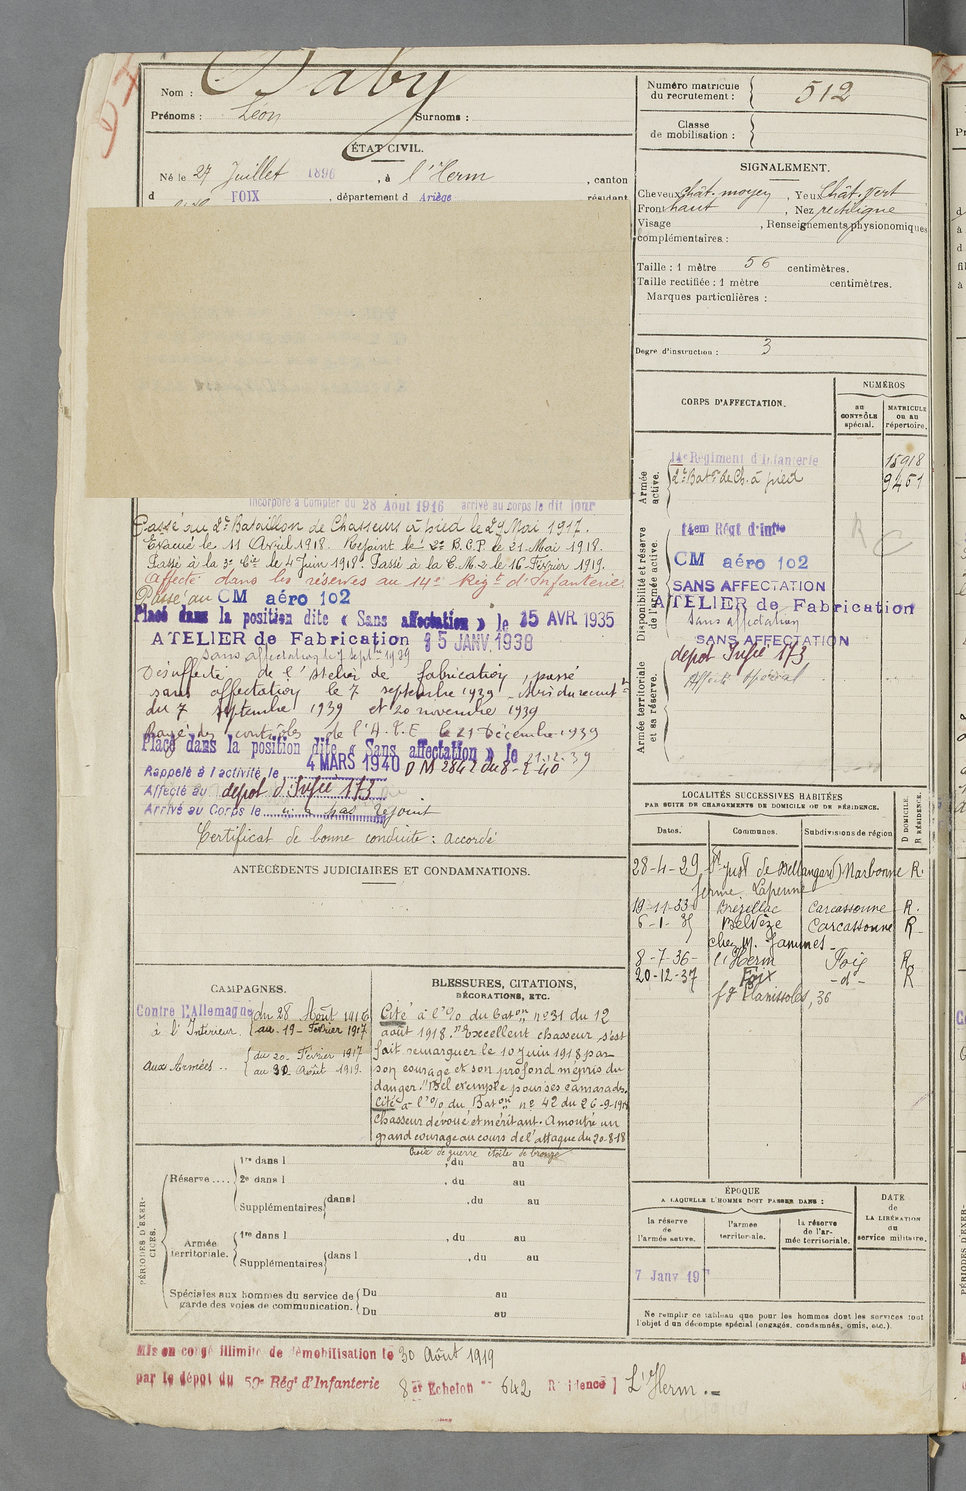 Nom : Baby
Prénoms : Léon Surnoms :
ÉTAT CIVIL.
Né le 27 Juillet 1896, à l'Herm, canton
d FOIX, département d Ariège, résidant
Incorporé à compter du 28 Août 1916 arrivé au corps le dit jour
Passé au 2e Bataillon de Chasseurs à pied le 24 Mai 1917.
Evacué le 11 Avril 1918. Rejoint le 2e B.C.P. le 21 Mai 1918.
Passé à la 3e Cie le 4 Juin 1918. Passé à la C.M.2 le 16 Février 1919.
Affecté dans les réserves au 14e Régt d'Infanterie.
Passé au CM aéro 102
Placé dans la position dite « Sans affectation » le 15 AVR. 1935
ATELIER de Fabrication 15 JANV. 1938
Sans affectation le 7 Septbre 1939
Désaffecté de l'Atelier de fabrication, passé
sans affectation le 7 septembre 1939 - Avis du recrut
du 7 septembre 1939 et 20 novembre 1939
Rayé des contrôles de l'A.F.E le 21 Décembre 1939
Placé dans la position dite « Sans affectation » le 21.12.39
4 MARS 1940 D M 2842 du 8-2-40
Rappelé à l'activité le
Affecté au dépôt d'Infie 173
Arrivé au Corps le n'a pas rejoint
Certificat de bonne conduite : accordé
ANTÉCÉDENTS JUDICIAIRES ET CONDAMNATIONS.
CAMPAGNES.
Contre l'Allemagne du 28 Août 1916
à l'Intérieur. au 19 Février 1917
aux Armées .. du 20 Février 1917
au 30 Août 1919.
BLESSURES, CITATIONS,
DÉCORATIONS, ETC.
Cité à l'% du Baton n° 31 du 12
août 1918. "Excellent chasseur s'est
fait remarquer le 10 Juin 1918 par
son courage et son profond mépris du
danger. Bel exemple pour ses camarades.
Cité à l'% du Baton n° 42 du 26-9-1918
Chasseur dévoué et méritant. A montré un
grand courage au cours de l'attaque du 20-8-18
Croix de guerre étoile de bronze
PÉRIODES D'EXERCICES.
Réserve .... 1re dans l , du au
2e dans l , du au
Supplémentaires dans l , du au
Armée territoriale. 1re dans l , du au
Supplémentaires dans l , du au
Spéciales aux hommes du service de garde des voies de communication. Du au
Du au
Mis en congé illimité de démobilisation le 30 Août 1919
par le dépôt du 59e Régt d'Infanterie 8e Echelon n° 642 Résidence L'Herm
Numéro matricule
du recrutement : 512
Classe
de mobilisation :
SIGNALEMENT.
Cheveux Chât. moyen, Yeux Chât. vert
Front haut, Nez rectiligne
Visage , Renseignements physionomiques
complémentaires :
Taille : 1 mètre 56 centimètres.
Taille rectifiée : 1 mètre centimètres.
Marques particulières :
Degré d'instruction : 3
CORPS D'AFFECTATION.
NUMÉROS
au CONTRÔLE spécial.
MATRICULE ou au répertoire.
Armée active.
14e Régiment d'Infanterie 15918
2e Batn de Ch. à pied 9451
Disponibilité et réserve de l'armée active.
14em Régt d'infie
CM aéro 102
SANS AFFECTATION
ATELIER de Fabrication
Sans affectation
SANS AFFECTATION
Armée territoriale et sa réserve.
dépôt Infie 173
Affecté spécial
R C
LOCALITÉS SUCCESSIVES HABITÉES
PAR SUITE DE CHANGEMENTS DE DOMICILE OU DE RÉSIDENCE.
Dates. Communes. Subdivisions de région D DOMICILE. R RÉSIDENCE.
28-4-29 St Just de Bellangard Narbonne R.
ferme Lapenne
19-11-33 Brézillac Carcassonne R.
6-1-35 Belvèze Carcassonne R
chez M. Jammes
8-7-36 l'Herm Foix R
20-12-37 Foix -d- R
fg Planissoles, 36
ÉPOQUE
A LAQUELLE L'HOMME DOIT PASSER DANS :
la réserve de l'armée active.
l'armée territoriale.
la réserve de l'armée territoriale.
DATE
de
LA LIBÉRATION
du
service militaire.
7 Janv 19
Ne remplir ce tableau que pour les hommes dont les services font
l'objet d'un décompte spécial (engagés, condamnés, omis, etc.).